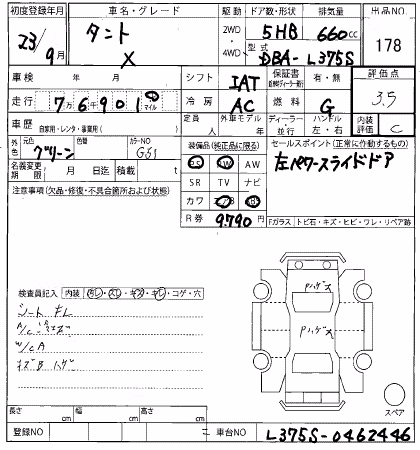 初度登録年月 車名・グレード 駆動 ドア数・形状 排気量 出品NO
23/9月 タント X 2WD・4WD 5HB 660cc 178
型式 DBA-L375S
車検 年 月 シフト IAT 保証書 有・無 評価点 3.5
走行 7万6千901 マイル 冷房 AC 燃料 G
車歴 自家用・レンタ・事業用( ) 定員 人 外車モデル 年 ディーラー・並行 ハンドル 左・右 内装評価 C
外色 元色 グリーン 色替 カラーNO G51 装備品(純正品に限る) セールスポイント(正常に作動するもの)
PS SW AW 左パワースライドドア
名義変更期限 月 日迄 積載 t SR TV ナビ
注意事項(欠品・修復・不具合箇所および状態) カワ
R券 9790 Fガラス・トビ石・キズ・ヒビ・ワレ・リペア跡
検査員記入 内装 キレ・スレ・キズ・ヨレ・コゲ・穴
シート キレ
W/CA
キズB ハゲ
Pハゲス
Pハゲス
スペア
長さ cm 幅 cm 高さ cm
登録NO 車台NO L375S-0462446